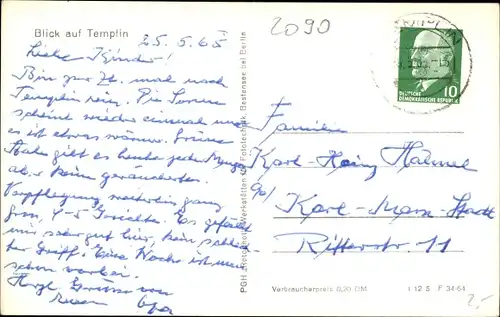 Blick auf Templin
25.5.65
2090
Liebe Kinder!
Bin zur Zt. mal nach
Templin rein. Die Sonne
scheint wieder einmal und
es ist etwas wärmer. Grüne
Aale gibt es heute jede Menge
aber keine geräucherten.
Verpflegung weiterhin ganz
gross, 4-5 Gerichte. Es gefällt
mir sehr gut hier, kein schlech-
ter Griff. Eine Woche ist nun
schon vorbei.
Herzl. Grüsse von
Opa
PGH „Fotorama" Werkstätten für Fototechnik, Bestensee bei Berlin
TEMPLIN
10
DEUTSCHE
DEMOKRATISCHE REPUBLIK
Familie
Karl-Heinz
90/ Karl-Marx-Stadt
Ritterstr. 11
Verbraucherpreis 0,20 DM
I 12 5 F 34-64
2,-